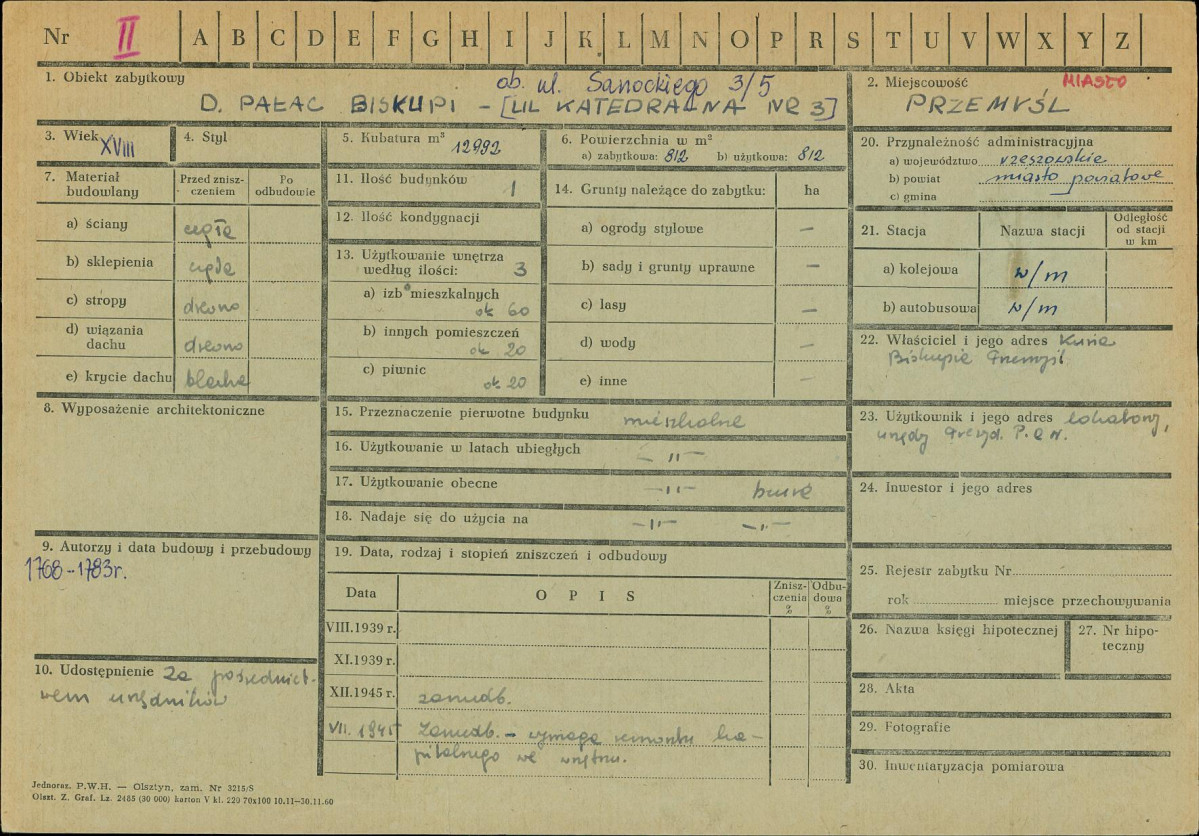 Nr II A B C D E F G H I J K L M N O P R S T U V W X Y Z
1. Obiekt zabytkowy
ob. ul. Sanockiego 3/5
D. PAŁAC BISKUPI - [UL KATEDRALNA NR 3]
2. Miejscowość MIASTO
PRZEMYŚL
3. Wiek XVIII
4. Styl
5. Kubatura m³ 12992
6. Powierzchnia w m²
a) zabytkowa: 812 b) użytkowa: 812
7. Materiał budowlany
Przed zniszczeniem
Po odbudowie
a) ściany cegła
b) sklepienia cegła
c) stropy drewno
d) wiązania dachu drewno
e) krycie dachu blacha
8. Wyposażenie architektoniczne
9. Autorzy i data budowy i przebudowy
1768-1783r.
10. Udostępnienie za pośrednict-
wem urzędników
11. Ilość budynków 1
12. Ilość kondygnacji
13. Użytkowanie wnętrza
według ilości: 3
a) izb mieszkalnych
ok 60
b) innych pomieszczeń
ok 20
c) piwnic
ok 20
14. Grunty należące do zabytku: ha
a) ogrody stylowe —
b) sady i grunty uprawne —
c) lasy —
d) wody —
e) inne —
15. Przeznaczenie pierwotne budynku mieszkalne
16. Użytkowanie w latach ubiegłych —"—
17. Użytkowanie obecne —"— biura
18. Nadaje się do użycia na —"— —"—
19. Data, rodzaj i stopień zniszczeń i odbudowy
Data OPIS Znisz-czenia % Odbu-dowa %
VIII.1939 r.
XI.1939 r.
XII.1945 r. zaniedb.
VII. 1945 Zaniedb. - wymaga remontu ka-
pitalnego we wnętrzu.
20. Przynależność administracyjna
a) województwo rzeszowskie
b) powiat miasto powiatowe
c) gmina
21. Stacja Nazwa stacji Odległość od stacji w km
a) kolejowa w/m
b) autobusowa w/m
22. Właściciel i jego adres Kuria
Biskupia Przemyśl
23. Użytkownik i jego adres lokatorzy,
urzędy Prezyd. P.R.N.
24. Inwestor i jego adres
25. Rejestr zabytku Nr
rok miejsce przechowywania
26. Nazwa księgi hipotecznej
27. Nr hipo-
teczny
28. Akta
29. Fotografie
30. Inwentaryzacja pomiarowa
Jednoraz. P.W.H. — Olsztyn, zam. Nr 3215/S
Olszt. Z. Graf. Lz. 2485 (30 000) karton V kl. 220 70x100 10.11—30.11.60